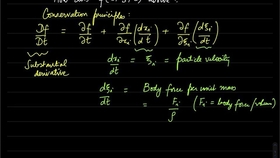 Conservation principles:
Df/Dt = ∂f/∂t + ∂f/∂xi (dxi/dt) + ∂f/∂ξi (dξi/dt)
Substantial derivative
dxi/dt = ξi = particle velocity
dξi/dt = Body force per unit mass
= Fi/ρ (Fi = body force/volum)